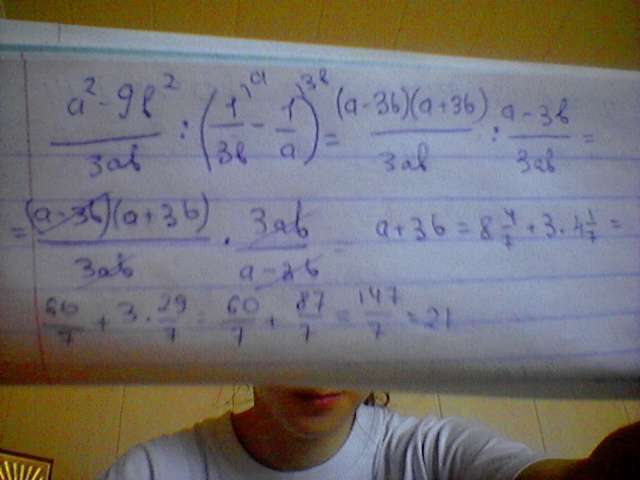 (a² - 9b²)/(3ab) : (1/(3b) ^a) - 1/a ^3b)) = ((a - 3b)(a + 3b))/(3ab) : (a - 3b)/(3ab) =
= ((a - 3b)(a + 3b))/(3ab) · (3ab)/(a - 3b) = a + 3b = 8 4/7 + 3 · 4 1/7 =
60/7 + 3 · 29/7 = 60/7 + 87/7 = 147/7 = 21